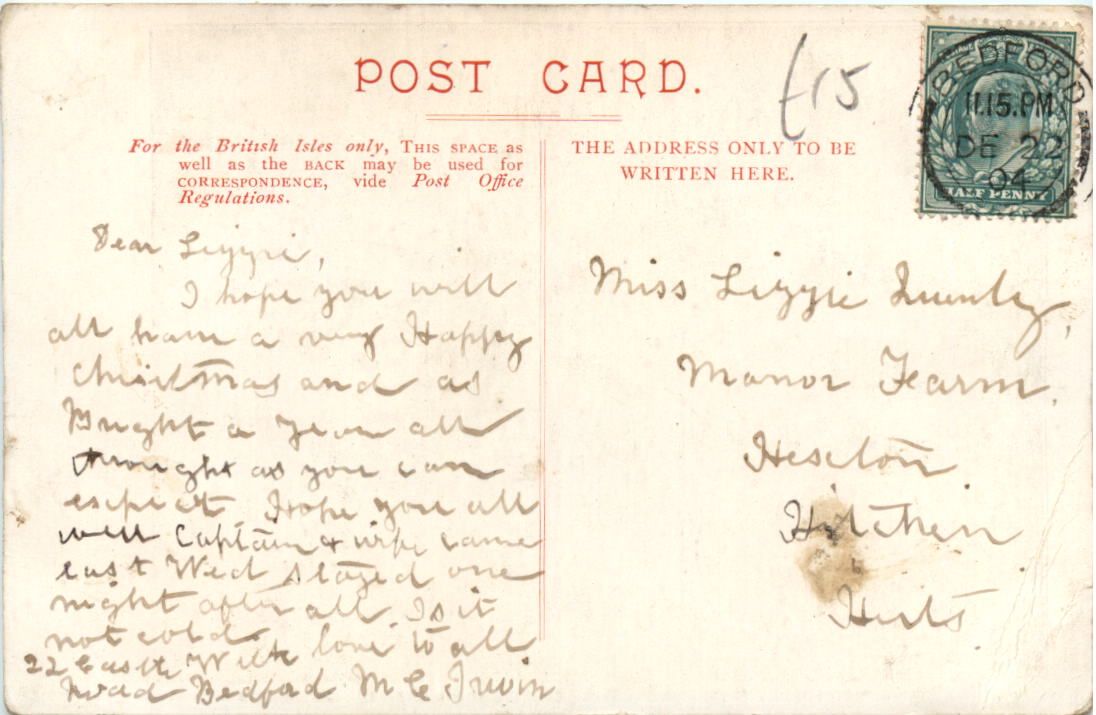 POST CARD.
£15
BEDFORD
11.15.PM
DE 22
04
HALF PENNY
For the British Isles only, THIS SPACE as
well as the BACK may be used for
CORRESPONDENCE, vide Post Office
Regulations.
THE ADDRESS ONLY TO BE
WRITTEN HERE.
Dear Lizzie,
I hope you will
all have a very Happy
Christmas and as
Bright a Year all
through as you can
expect Hope you all
well Captain & wife came
last Wed stayed one
night after all. Is it
not cold.
With love to all
22 Castle
Road Bedford M C Irwin
Miss Lizzie
Manor Farm.
Hexton
Hitchin
Herts